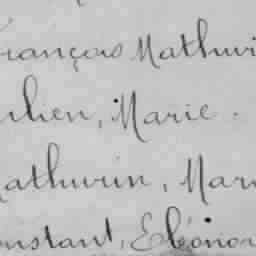 François Mathuri
ulien, Marie.
Mathurin, Mari
onstant, Eléonor